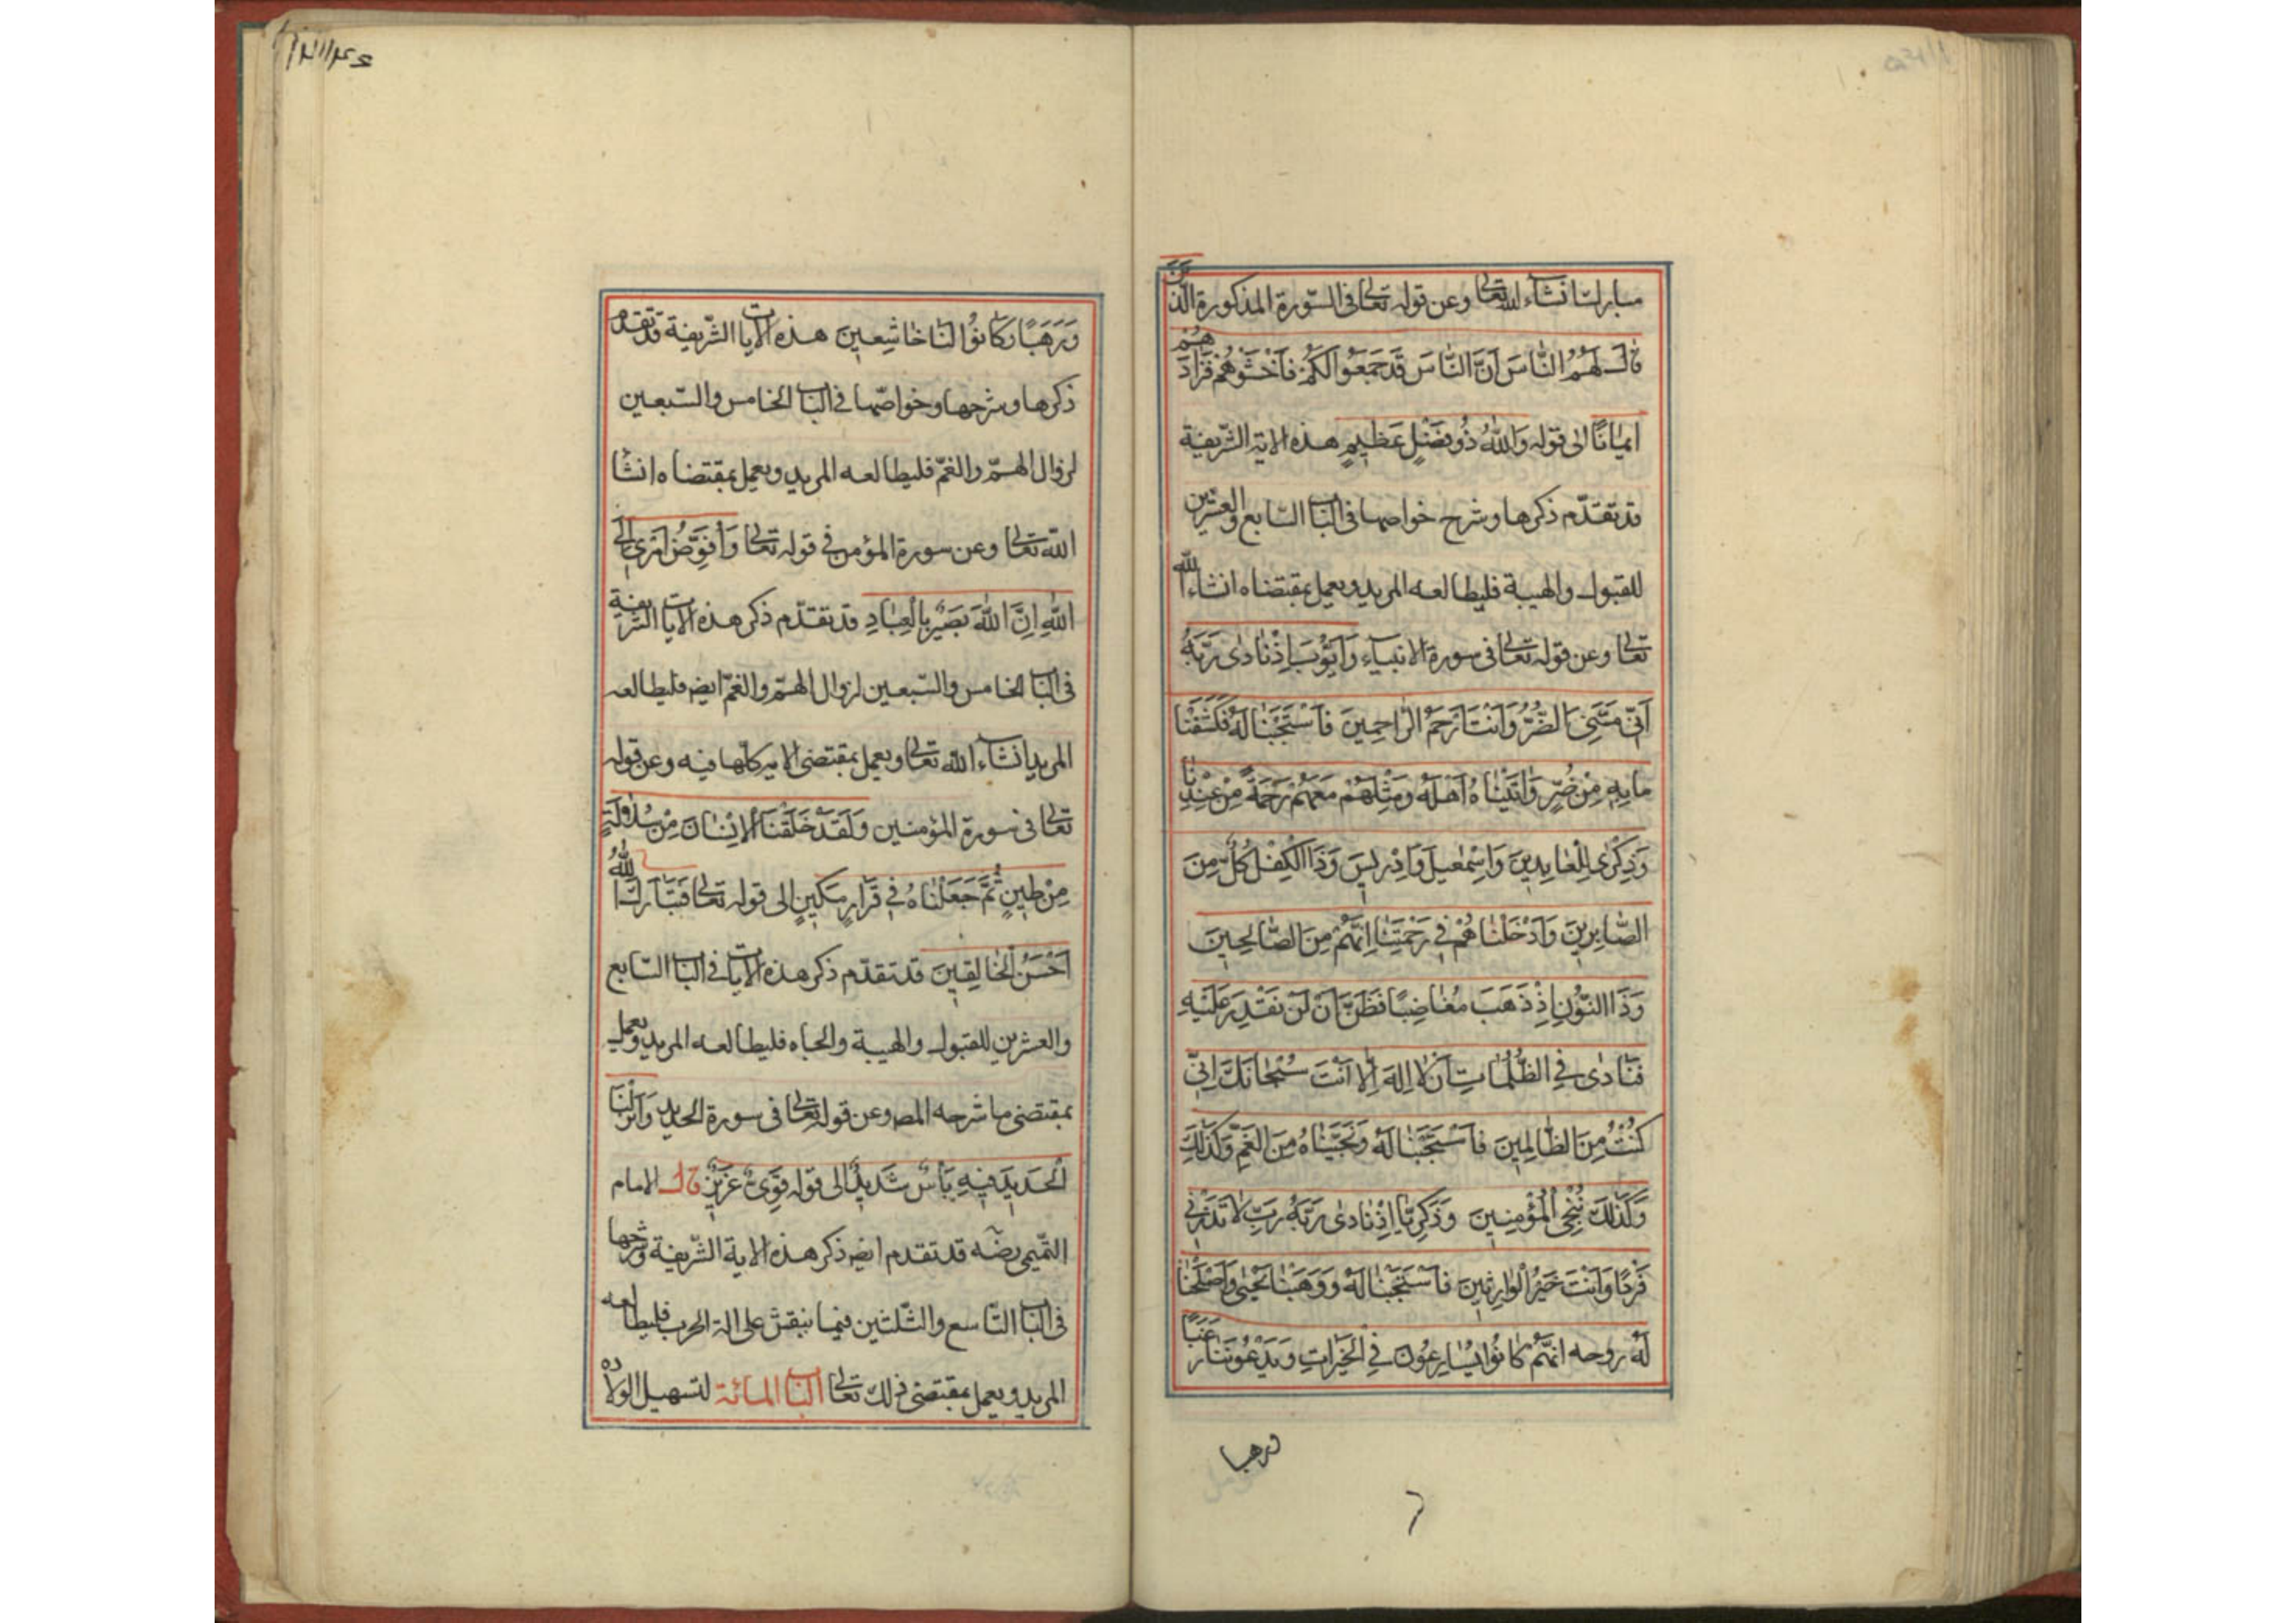 مباركا انشاء الله تعالى وعن قوله تعالى فى السّورة المذكورة الَّذينَ
قالَ لَهُمُ النّاسُ اَنَّ النّاسَ قَدْ جَمَعُوا لَكُمْ فَاخْشَوْهُمْ فَزادَهُمْ
ايمانًا الى قوله وَاللهُ ذُو فَضْلٍ عَظيمٍ هذه الاية الشّريفة
قد تقدّم ذكرها وشرح خواصها فى الباب السّابع والعشرين
للقبول والهيبة فليطالعه المريد ويعمل بمقتضاه انشاء الله
تعالى وعن قوله تعالى فى سورة الانبياء وَاَيّوُبَ اِذْ نادى رَبَّهُ
اَنّى مَسَّنِىَ الضُّرُّ وَاَنْتَ اَرْحَمُ الرّاحِمينَ فَاسْتَجَبْنا لَهُ فَكَشَفْنا
ما بِهِ مِنْ ضُرٍّ وَاتَيْناهُ اَهْلَهُ وَمِثْلَهُمْ مَعَهُمْ رَحْمَةً مِنْ عِنْدِنا
وَذِكْرى لِلْعابِدينَ وَاِسْمعيلَ وَاِدْريسَ وَذَا الْكِفْلِ كُلٌّ مِنَ
الصّابِرينَ وَاَدْخَلْناهُمْ فى رَحْمَتِنا اِنَّهُمْ مِنَ الصّالِحينَ
وَذَا النّوُنِ اِذْ ذَهَبَ مُغاضِبًا فَظَنَّ اَنْ لَنْ نَقْدِرَ عَلَيْهِ
فَنادى فِى الظُّلُماتِ اَنْ لا اِلهَ اِلاّ اَنْتَ سُبْحانَكَ اِنّى
كُنْتُ مِنَ الظّالِمينَ فَاسْتَجَبْنا لَهُ وَنَجَّيْناهُ مِنَ الْغَمِّ وَكَذلِكَ
وَكَذلِكَ نُنْجِى الْمُؤْمِنينَ وَزَكَرِيّا اِذْ نادى رَبَّهُ رَبِّ لا تَذَرْنى
فَرْدًا وَاَنْتَ خَيْرُ الْوارِثينَ فَاسْتَجَبْنا لَهُ وَوَهَبْنا يَحْيى وَاَصْلَحْنا
لَهُ زوجه اِنَّهُمْ كانُوا يُسارِعُونَ فِى الْخَيْراتِ وَيَدْعُونَنا رَغَبًا
ورهبا
وَرَهَبًا وَكانُوا لَنا خاشِعينَ هذه الايات الشّريفة قد تقدم
ذكرها وشرحها وخواصّها فى الباب الخامس والسّبعين
لزوال الهمّ والغمّ فليطالعه المريد ويعمل بمقتضاه انشا
الله تعالى وعن سورة المؤمن فى قوله تعالى وَاُفَوِّضُ اَمْرى اِلَى
اللهِ اِنَّ اللهَ بَصيرٌ بِالْعِبادِ قد تقدّم ذكر هذه الايات الشّريفة
فى الباب الخامس والسّبعين لزوال الهمّ والغمّ ايضا فليطالعه
المريد انشاء الله تعالى ويعمل بمقتضى الامر كلّها فيه وعن قوله
تعالى فى سورة المؤمنين وَلَقَدْ خَلَقْنَا الْاِنْسانَ مِنْ سُلالَةٍ
مِنْ طينٍ ثُمَّ جَعَلْناهُ فى قَرارٍ مَكينٍ الى قوله تعالى فَتَبارَكَ اللهُ
اَحْسَنُ الْخالِقينَ قد تقدّم ذكر هذه الايات فى الباب السّابع
والعشرين للقبول والهيبة والجاه فليطالعه المريد ويعمل
بمقتضى ما شرحه المص وعن قوله تعالى فى سورة الحديد وَاَنْزَلْنَا
الْحَديدَ فيهِ بَأْسٌ شَديدٌ الى قوله قَوِىٌّ عَزيزٌ قال الامام
التّميمى رضه قد تقدم ايض ذكر هذه الاية الشّريفة وشرحها
فى الباب التّاسع والثّلثين فيما ينقش على الة الحرب فليطالعه
المريد ويعمل بمقتضى ذلك تعالى الباب المائة لتسهيل الولاده